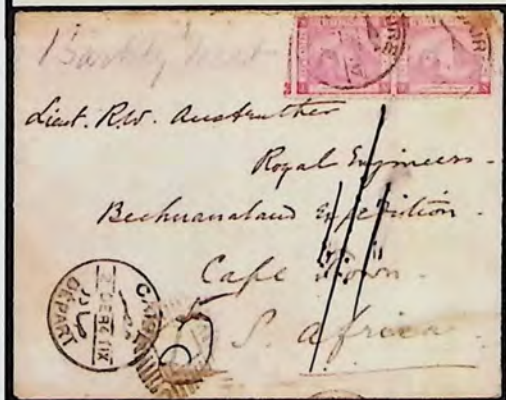 Barkly West
Lieut. R.W. Anstruther
Royal Engineers -
Bechuanaland Expedition -
Cape Town -
S. Africa
CAIRE
DÉPART